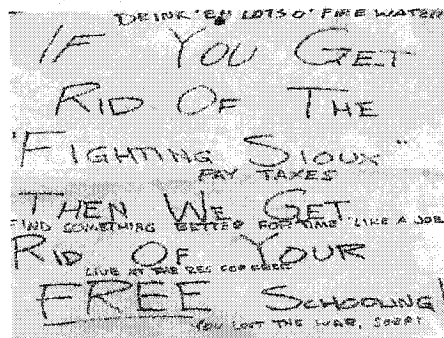 DRINK 'EM LOTS O' FIRE WATER
IF YOU GET
RID OF THE
"FIGHTING SIOUX"
PAY TAXES
THEN WE GET
FIND SOMETHING BETTER FOR TIME LIKE A JOB
RID OF YOUR
LIVE AT THE RES FOR FREE
FREE SCHOOLING!
YOU LOST THE WAR, SORRY